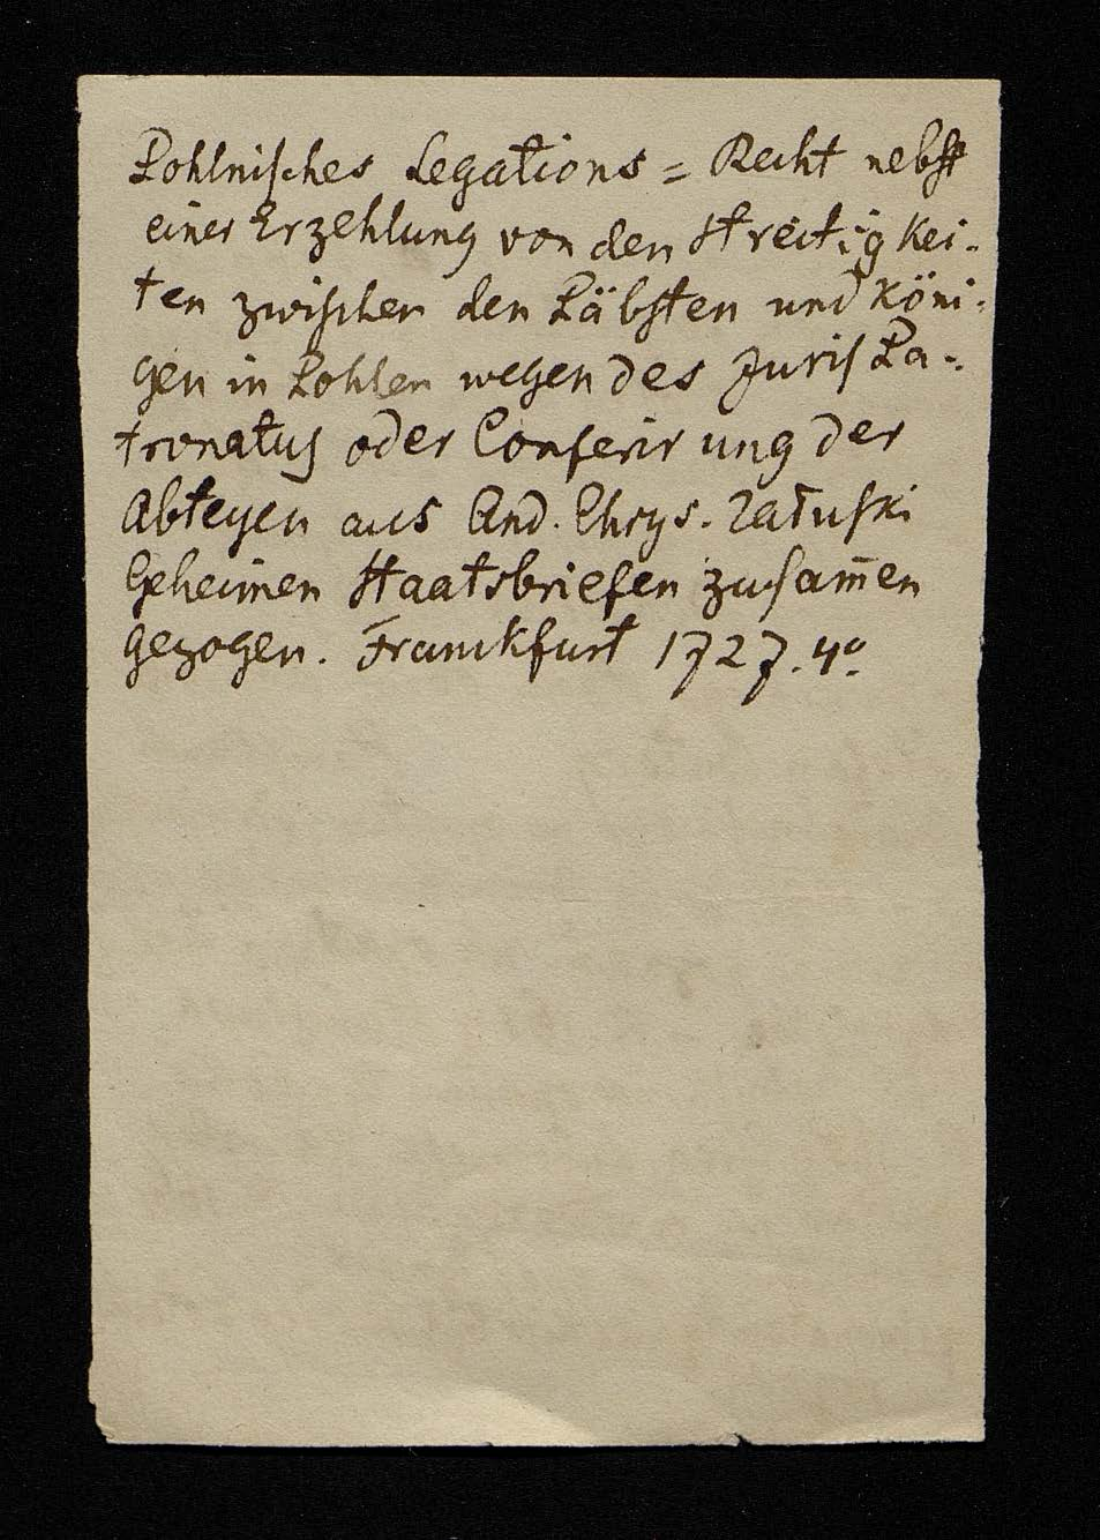 Pohlnisches Legations = Recht nebst
einer Erzehlung von den Streitigkei-
ten zwischen den Päbsten und Köni-
gen in Pohlen wegen des Juris Pa-
tronatus oder Conferirung der
Abteyen aus And. Chrys. Załuski
Geheimen Staatsbriefen zusam̅en
gezogen. Franckfurt 1727. 4º.